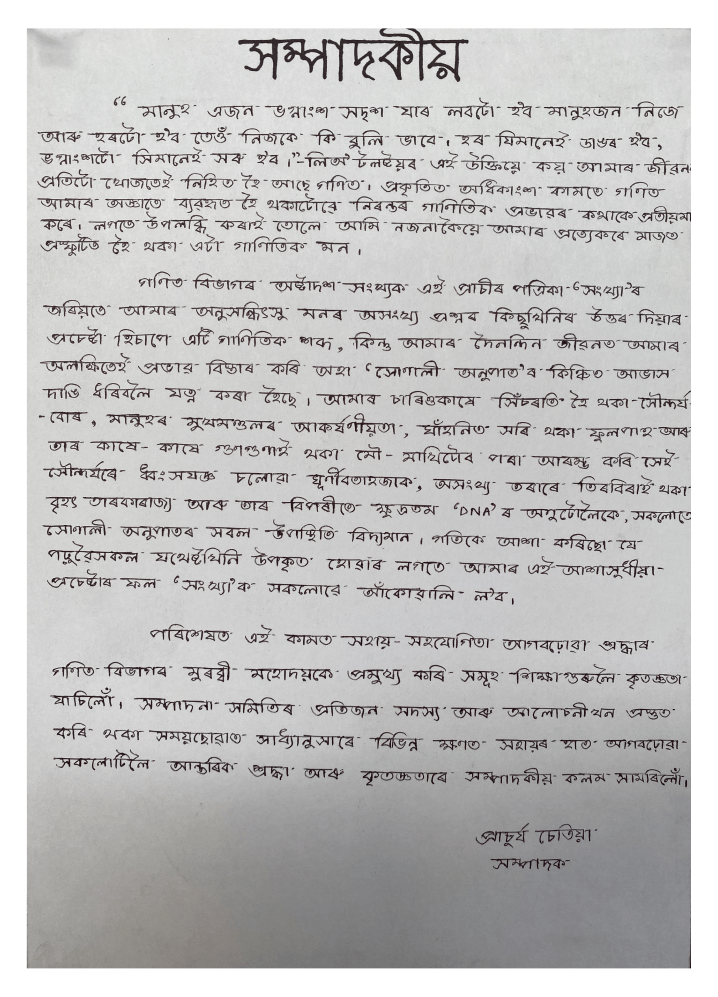 সম্পাদকীয়
“ মানুহ এজন ভগ্নাংশ সদৃশ যাৰ লবটো হ'ব মানুহজন নিজে
আৰু হৰটো হ'ব তেওঁ নিজকে কি বুলি ভাবে। হৰ যিমানেই ডাঙৰ হ'ব,
ভগ্নাংশটো সিমানেই সৰু হ'ব।”-লিঅ' টলষ্টয়ৰ এই উক্তিয়ে কয় আমাৰ জীৱনৰ
প্ৰতিটো খোজতেই নিহিত হৈ আছে গণিত। প্ৰকৃতিত অধিকাংশ কামতে গণিত
আমাৰ অজ্ঞাতে ব্যৱহৃত হৈ থকাটোৱে নিৰন্তৰ গাণিতিক প্ৰভাৱৰ কথাকে প্ৰতীয়মান
কৰে। লগতে উপলব্ধি কৰাই তোলে আমি নজনাকৈয়ে আমাৰ প্ৰত্যেকৰে মাজত
প্ৰস্ফুটিত হৈ থকা এটা গাণিতিক মন।
গণিত বিভাগৰ অষ্টাদশ সংখ্যক এই প্ৰাচীৰ পত্ৰিকা-‘সংখ্যা’ৰ
জৰিয়তে আমাৰ অনুসন্ধিৎসু মনৰ অসংখ্য প্ৰশ্নৰ কিছুখিনিৰ উত্তৰ দিয়াৰ
প্ৰচেষ্টা হিচাপে এটি গাণিতিক শব্দ, কিন্তু আমাৰ দৈনন্দিন জীৱনত আমাৰ
অলক্ষিতেই প্ৰভাৱ বিস্তাৰ কৰি অহা ‘সোণালী অনুপাত’ৰ কিঞ্চিত আভাস
দাঙি ধৰিবলৈ যত্ন কৰা হৈছে। আমাৰ চাৰিওকাষে সিঁচৰতি হৈ থকা সৌন্দৰ্য
-বোৰ, মানুহৰ মুখমণ্ডলৰ আকৰ্ষণীয়তা, ঘাঁহনিত সৰি থকা ফুলপাহ আৰু
তাৰ কাষে-কাষে গুণগুণাই থকা মৌ-মাখিটোৰ পৰা আৰম্ভ কৰি সেই
সৌন্দৰ্যৰে ধ্বংসযজ্ঞ চলোৱা ঘূৰ্ণীবতাহজাক, অসংখ্য তৰাৰে তিৰবিৰাই থকা
বৃহৎ তাৰকাৰাজ্য আৰু তাৰ বিপৰীতে ক্ষুদ্ৰতম ‘DNA’ৰ অণুটোলৈকে, সকলোতে
সোণালী অনুপাতৰ সবল উপস্থিতি বিদ্যমান। গতিকে আশা কৰিছো যে
পঢ়ুৱৈসকল যথেষ্টখিনি উপকৃত হোৱাৰ লগতে আমাৰ এই আশাসুধীয়া
প্ৰচেষ্টাৰ ফল ‘সংখ্যা’ক সকলোৱে আঁকোৱালি ল'ব।
পৰিশেষত এই কামত সহায়-সহযোগিতা আগবঢ়োৱা শ্ৰদ্ধাৰ
গণিত বিভাগৰ মুৰব্বী মহোদয়কে প্ৰমুখ্য কৰি সমূহ শিক্ষাগুৰুলৈ কৃতজ্ঞতা
যাচিলোঁ। সম্পাদনা সমিতিৰ প্ৰতিজন সদস্য আৰু আলোচনীখন প্ৰস্তুত
কৰি থকা সময়ছোৱাত সাধ্যানুসাৰে বিভিন্ন ক্ষণত সহায়ৰ হাত আগবঢ়োৱা
সকলোটিলৈ আন্তৰিক শ্ৰদ্ধা আৰু কৃতজ্ঞতাৰে সম্পাদকীয় কলম সামৰিলোঁ।
প্ৰাচুৰ্য চেতিয়া
সম্পাদক